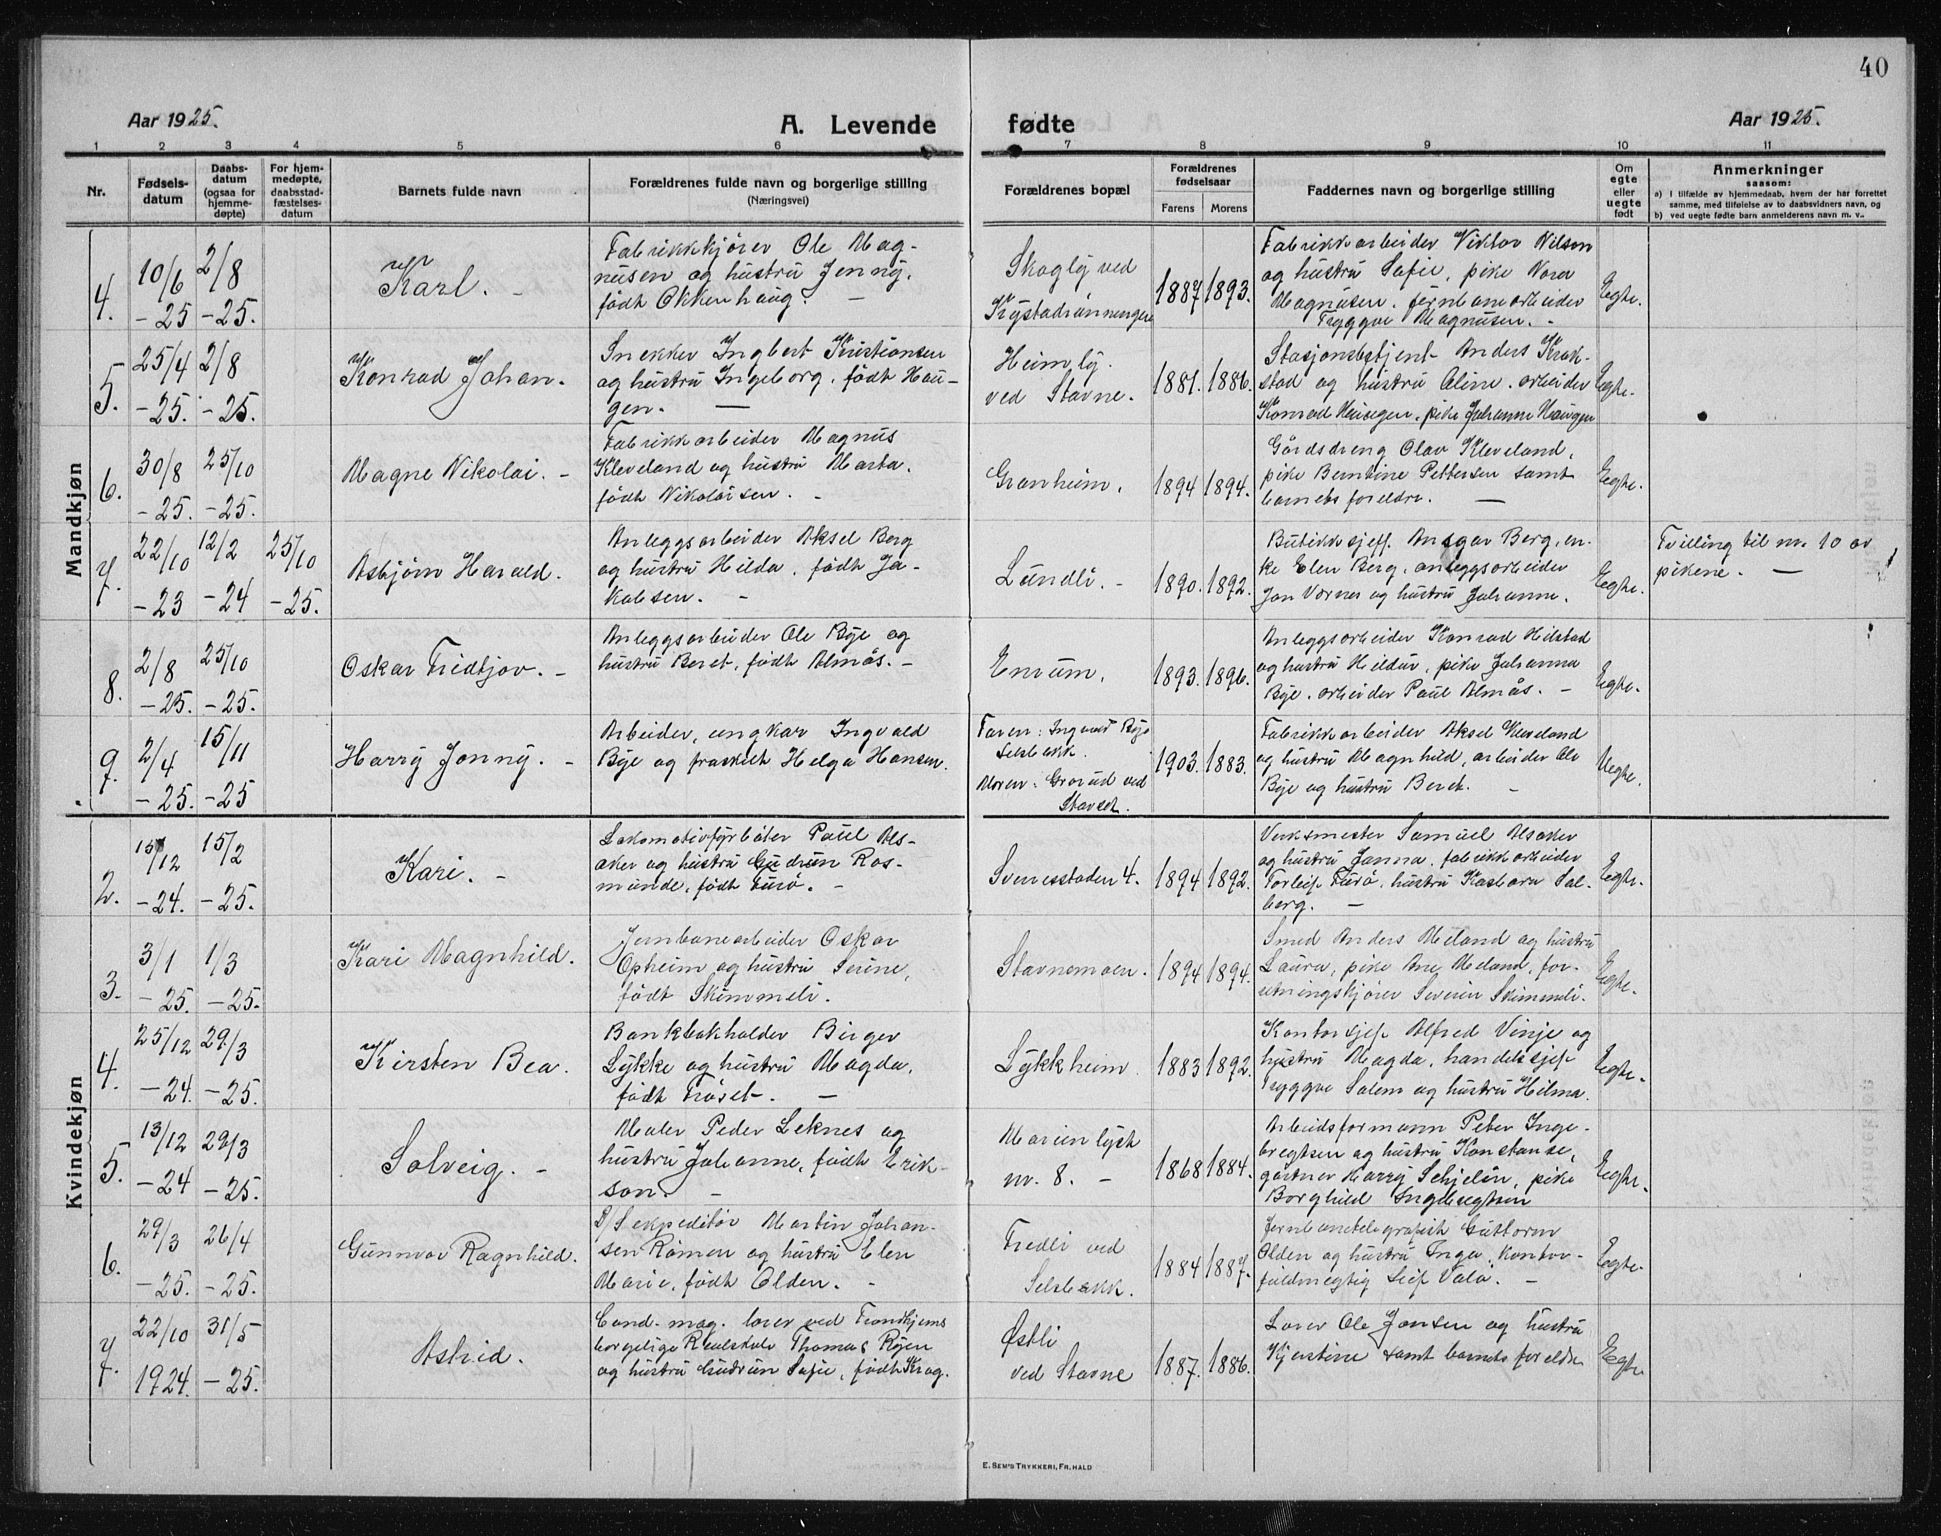 40
Aar 1925.
A. Levende
fødte
Aar 1925.
1 2 3 4 5 6 7 8 9 10 11
Nr.
Fødsels-
datum
Daabs-
datum
(ogsaa for
hjemme-
døpte)
For hjem-
medøpte,
daabsstad-
fæstelses-
datum
Barnets fulde navn
Forældrenes fulde navn og borgerlige stilling
(Næringsvei)
Forældrenes bopæl
Forældrenes
fødselsaar
Farens Morens
Faddernes navn og borgerlige stilling
Om
egte
eller
uegte
født
Anmerkninger
saasom:
a) I tilfælde av hjemmedaab, hvem der har forrettet
samme, med tilføielse av to daabsvidners navn, og
b) ved uegte fødte barn anmelderens navn m. v.
Mandkjøn
4.
10/6
-25
2/8
-25.
Karl. -
Fabrikkkjører Ole Mag-
nusen og hustru Jenny,
født Okkenhaug. -
Skogly ved
Krystadrønningen
1887 1893.
Fabrikkarbeider Viktor Nilson
og hustru Sofie, pike Nora
Magnusen, jernbanearbeider
Tryggve Magnusen. -
Egte.
5.
25/4
-25.
2/8
-25.
Konrad Johan.
Snekker Ingbert Kristiansen
og hustru Ingeborg, født Hau-
gen. -
Heimly
ved Stavne.
1881. 1886.
Stasjonsbetjent Anders Krok-
stad og hustru Oline, arbeider
Konrad Haugen, pike Johanne Haugen
Egte.
6.
30/8
-25.
25/10
-25.
Magne Nikolai. -
Fabrikkarbeider Magnus
Kleveland og hustru Marta,
født Nikolaisen. -
Granheim.
1894 1894.
Gårdsdreng Olav Kleveland,
pike Berntine Pettersen samt
barnets foreldre. -
Egte.
7.
22/10
-23
12/2
-24
25/10
-25.
Asbjørn Harald.
Anleggsarbeider Aksel Berg
og hustru Hilda, født Ja-
kobsen. -
Lundli. -
1890. 1892.
Butikksjef Ansgar Berg, en-
ke Elen Berg, anleggsarbeider
Jon Vornes og hustru Johanne.
Egte.
Tvilling til nr. 10 av
pikene. -
8.
2/8
-25.
25/10
-25.
Oskar Fridtjov. -
Anleggsarbeider Ole Bye og
hustru Beret, født Almås. -
Enrum.
1893. 1896.
Anleggsarbeider Konrad Hilstad
og hustru Hildur, pike Johanna
Bye, arbeider Paul Almås. -
Egte.
9.
2/4
-25.
15/11
-25
Harry Jonny. -
Arbeider, ungkar Ingvald
Bye og fraskilt Helga Hansen.
Faren: Ingvald Bye
Selsbakk.
Moren: Grorud ved
Stavset.
1903. 1883.
Fabrikkarbeider Aksel Kleveland
og hustru Magnhild, arbeider Ole
Bye og hustru Beret. -
Uegte.
Kvindekjøn
2.
15/12
-24.
15/2
-25.
Kari. -
Lokomotivfyrbøter Paul Als-
aker og hustru Gudrun Ros-
munde, født Furø. -
Svenesstaden 4.
1894 1892.
Verksmester Samuel Alsaker
og hustru Janna, fabrikkarbeider
Torleif Furø, hustru Kasbara Sal-
berg. -
Egte.
3.
3/1
-25.
1/3
-25.
Kari Magnhild.
Jernbanearbeider Oskar
Opheim og hustru Serine,
født Skimmeli.
Stavnemoen.
1894 1894.
Smed Anders Meland og hustru
Laura, pike Ane Meland, for-
retningskjører Severin Skimmeli.
Egte.
4.
25/12
-24.
29/3
-25.
Kirsten Bea.
Bankbokholder Birger
Lykke og hustru Magda,
født Frøset. -
Lykkheim.
1883 1892.
Kontorsjef Alfred Vinje og
hustru Magda, handelssjef
Tryggve Solem og hustru Hilma.
Egte.
5.
13/12
-24
29/3
-25.
Solveig. -
Maler Peder Leknes og
hustru Johanne, født Erik-
son. -
Marienlyst
nr. 8. -
1868 1884.
Arbeidsformann Peter Inge-
bregtsen og hustru Konstanse,
gartner Harry Schjelin, pike
Borghild Ingebregtsen
Egte.
6.
29/3
-25.
26/4
-25.
Gunnvor Ragnhild.
D/S ekspeditør Martin Johan-
sen Rømen og hustru Elen
Marie, født Olden. -
Fredli ved
Selsbakk.
1884 1887.
Jernbanetelegrafist Guttorm
Olden og hustru Inga, kontor-
fuldmegtig Leif Valø. -
Egte.
7.
22/10
1924.
31/5
-25.
Astrid.
Cand. mag. lærer ved Trondhjems
borgelige Realskole Thomas Røen
og hustru Gudrun Sofie, født Krog.
Østli
ved Stavne
1887. 1886.
Lærer Ole Jonsen og hustru
Kjerstine samt barnets foreldre
Egte
E. SEM'S TRYKKERI, FR.HALD